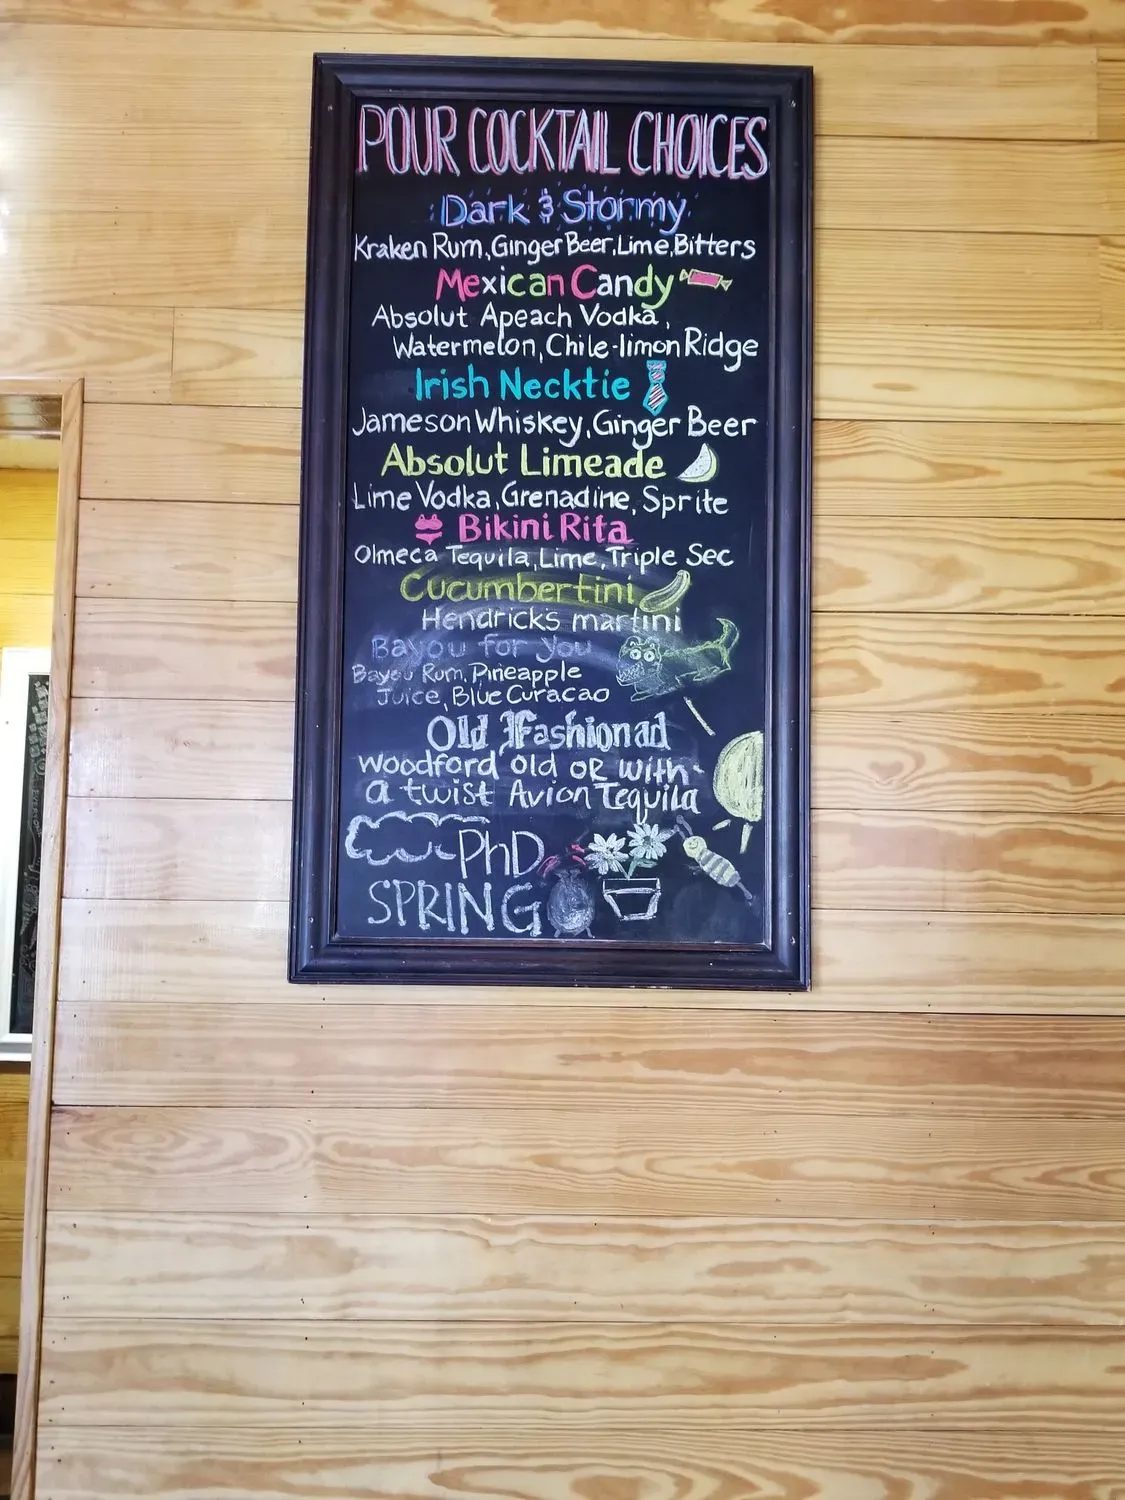 POUR COCKTAIL CHOICES
Dark & Stormy
Kraken Rum, Ginger Beer, Lime, Bitters
Mexican Candy
Absolut Apeach Vodka,
Watermelon, Chile-limon Ridge
Irish Necktie
Jameson Whiskey, Ginger Beer
Absolut Limeade
Lime Vodka, Grenadine, Sprite
Bikini Rita
Olmeca Tequila, Lime, Triple Sec
Cucumbertini
Hendrick's martini
Bayou for you
Bayou Rum, Pineapple
Juice, Blue Curacao
Old Fashionad
Woodford old or with
a twist Avion Tequila
PhD
SPRING